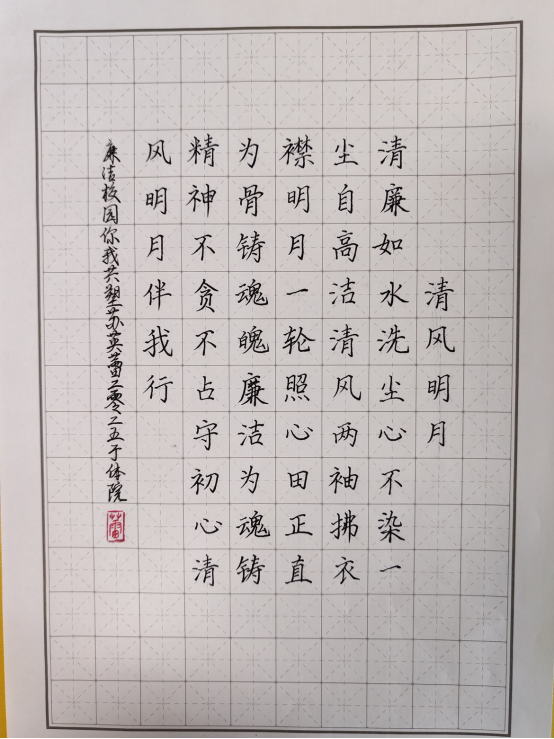 清风明月
清廉如水洗尘心不染一
尘自高洁清风两袖拂衣
襟明月一轮照心田正直
为骨铸魂魄廉洁为魂铸
精神不贪不占守初心清
风明月伴我行
廉洁校园你我共塑苏英蕾二零二五于体院
蕾